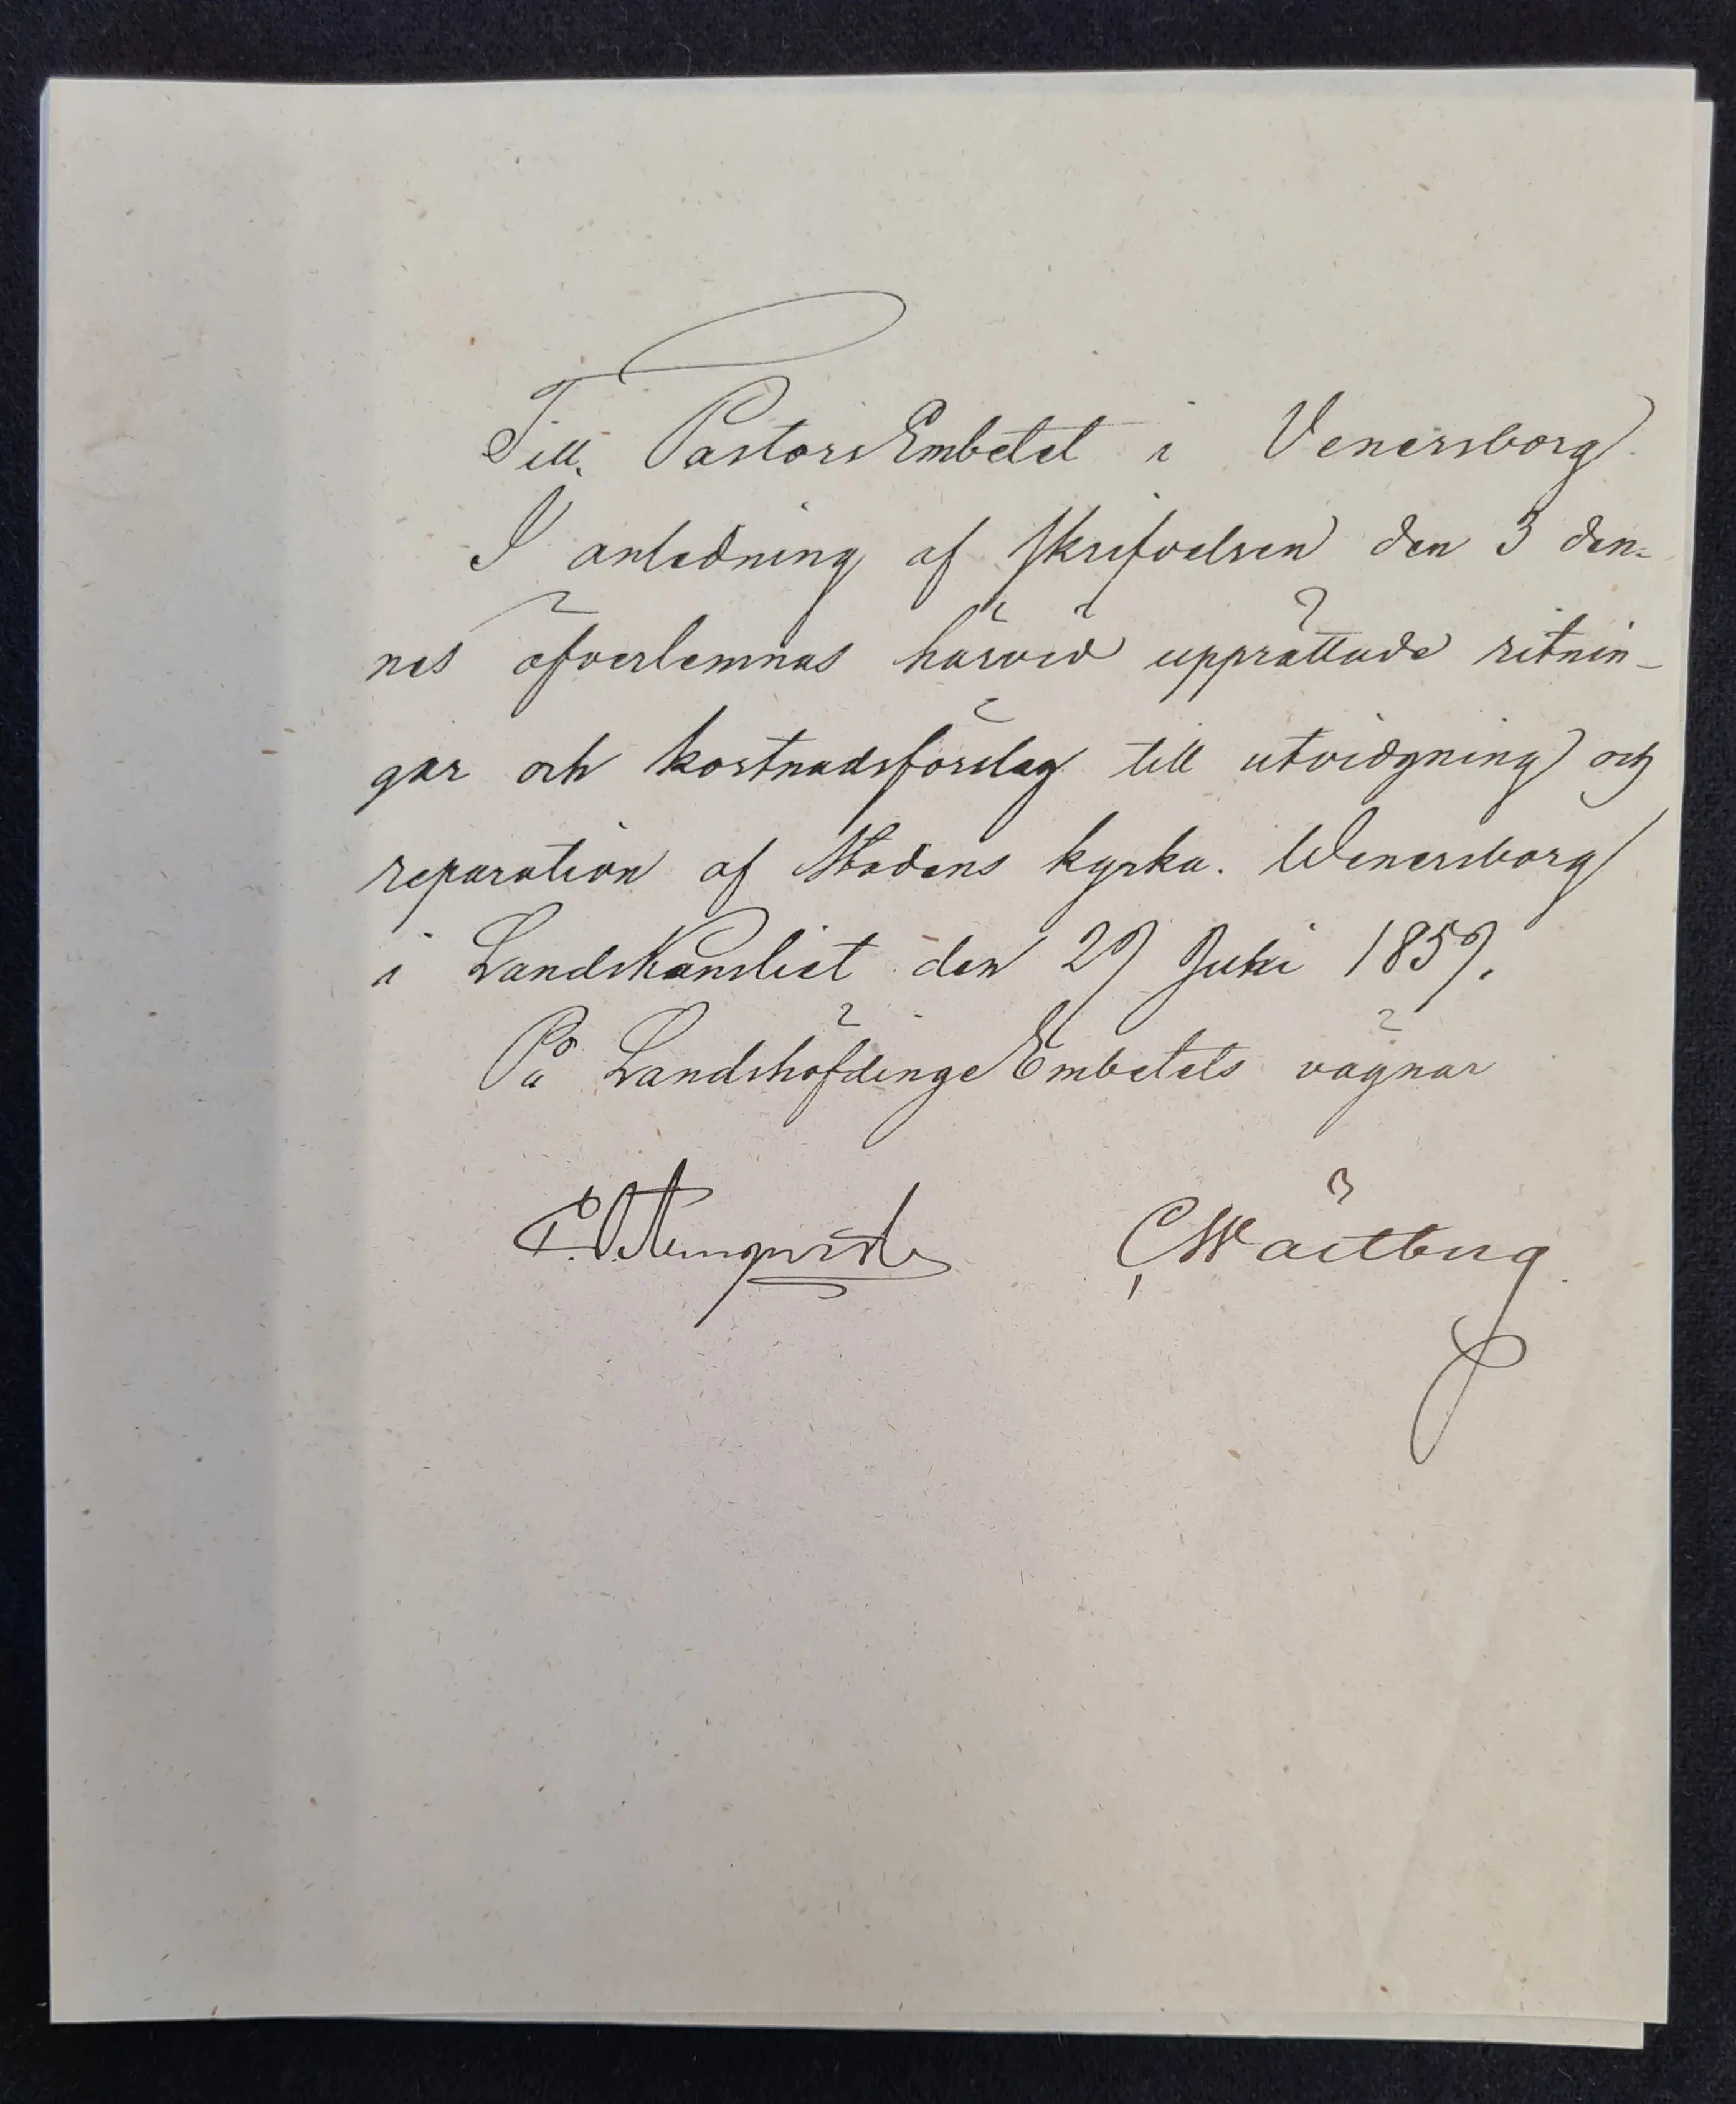 Till PastorsEmbetet i Venersborg.
I anledning af skrifvelsen den 3 den-
nes öfverlemnas härvid upprättade ritnin-
gar och kostnadsförslag till utvidgning och
reparation af Stadens kyrka. Wenersborg
i LandsKansliet den 29 Juli 1859.
På LandshöfdingeEmbetets vägnar